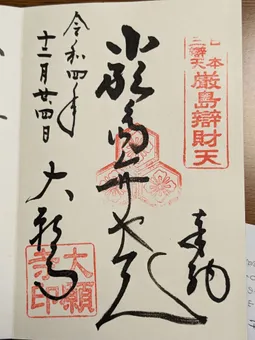 日本
三辯天
厳島辯財天
奉納
厳島弁才天
大願寺
大願寺印
令和四年
十二月廿四日